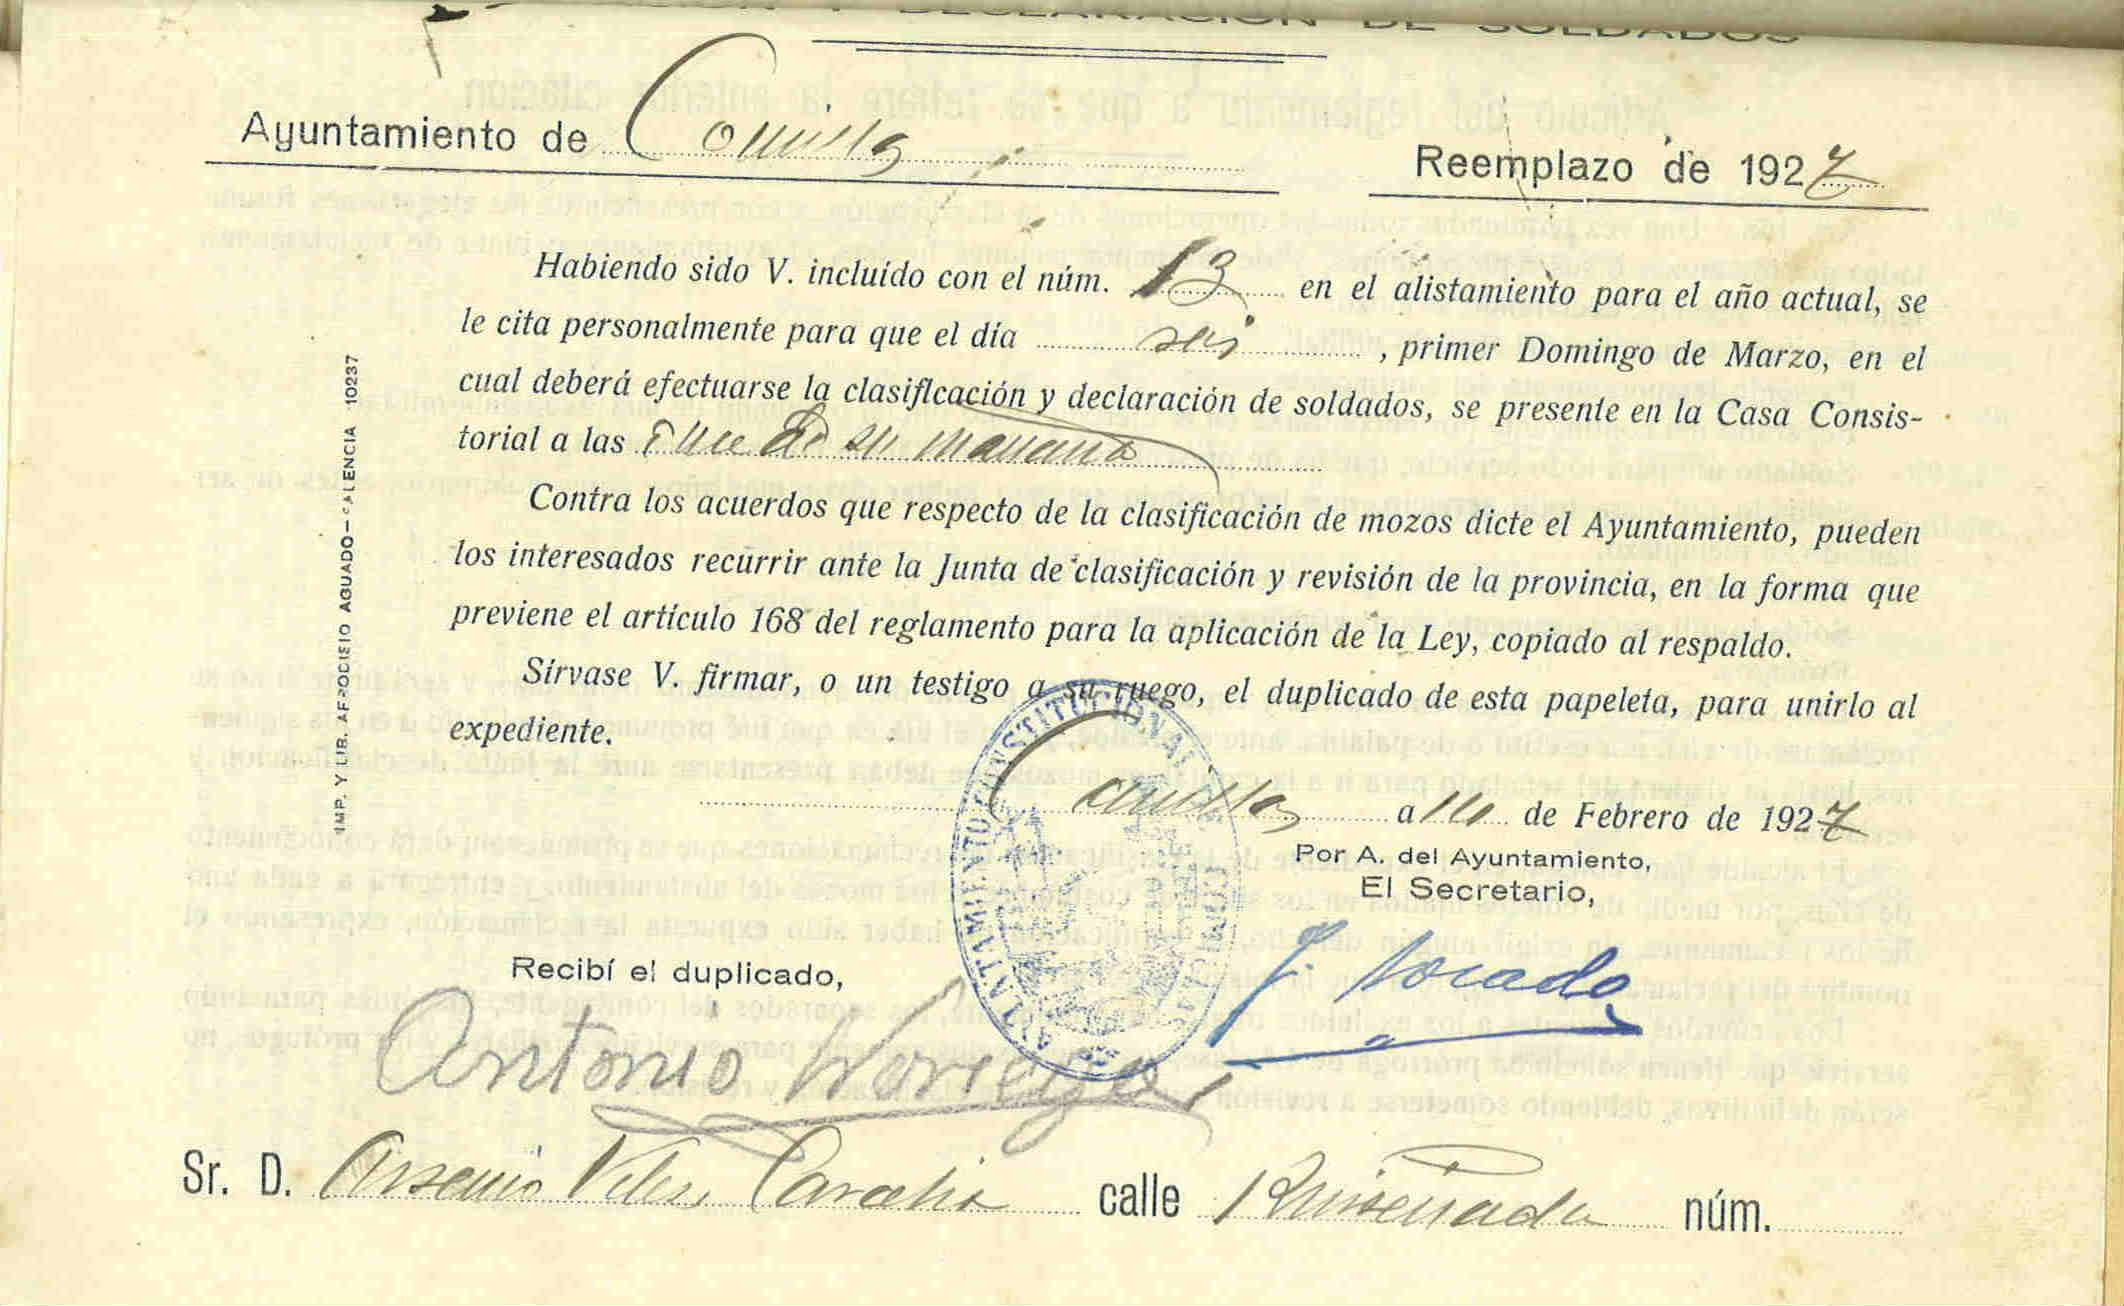 DECLARACIÓN DE SOLDADOS
Ayuntamiento de Comillas
Reemplazo de 1927
Habiendo sido V. incluído con el núm. 13 en el alistamiento para el año actual, se
le cita personalmente para que el día seis, primer Domingo de Marzo, en el
cual deberá efectuarse la clasificación y declaración de soldados, se presente en la Casa Consis-
torial a las de su mañana
Contra los acuerdos que respecto de la clasificación de mozos dicte el Ayuntamiento, pueden
los interesados recurrir ante la Junta de clasificación y revisión de la provincia, en la forma que
previene el artículo 168 del reglamento para la aplicación de la Ley, copiado al respaldo.
Sírvase V. firmar, o un testigo a su ruego, el duplicado de esta papeleta, para unirlo al
expediente.
Comillas a de Febrero de 1927
Por A. del Ayuntamiento,
El Secretario,
Recibí el duplicado,
Antonio
Sr. D. Arsenio calle Ruiseñada núm.
IMP. Y LIB. AFRODISIO AGUADO—PALENCIA 10237
AYUNTAMIENTO CONSTITUCIONAL